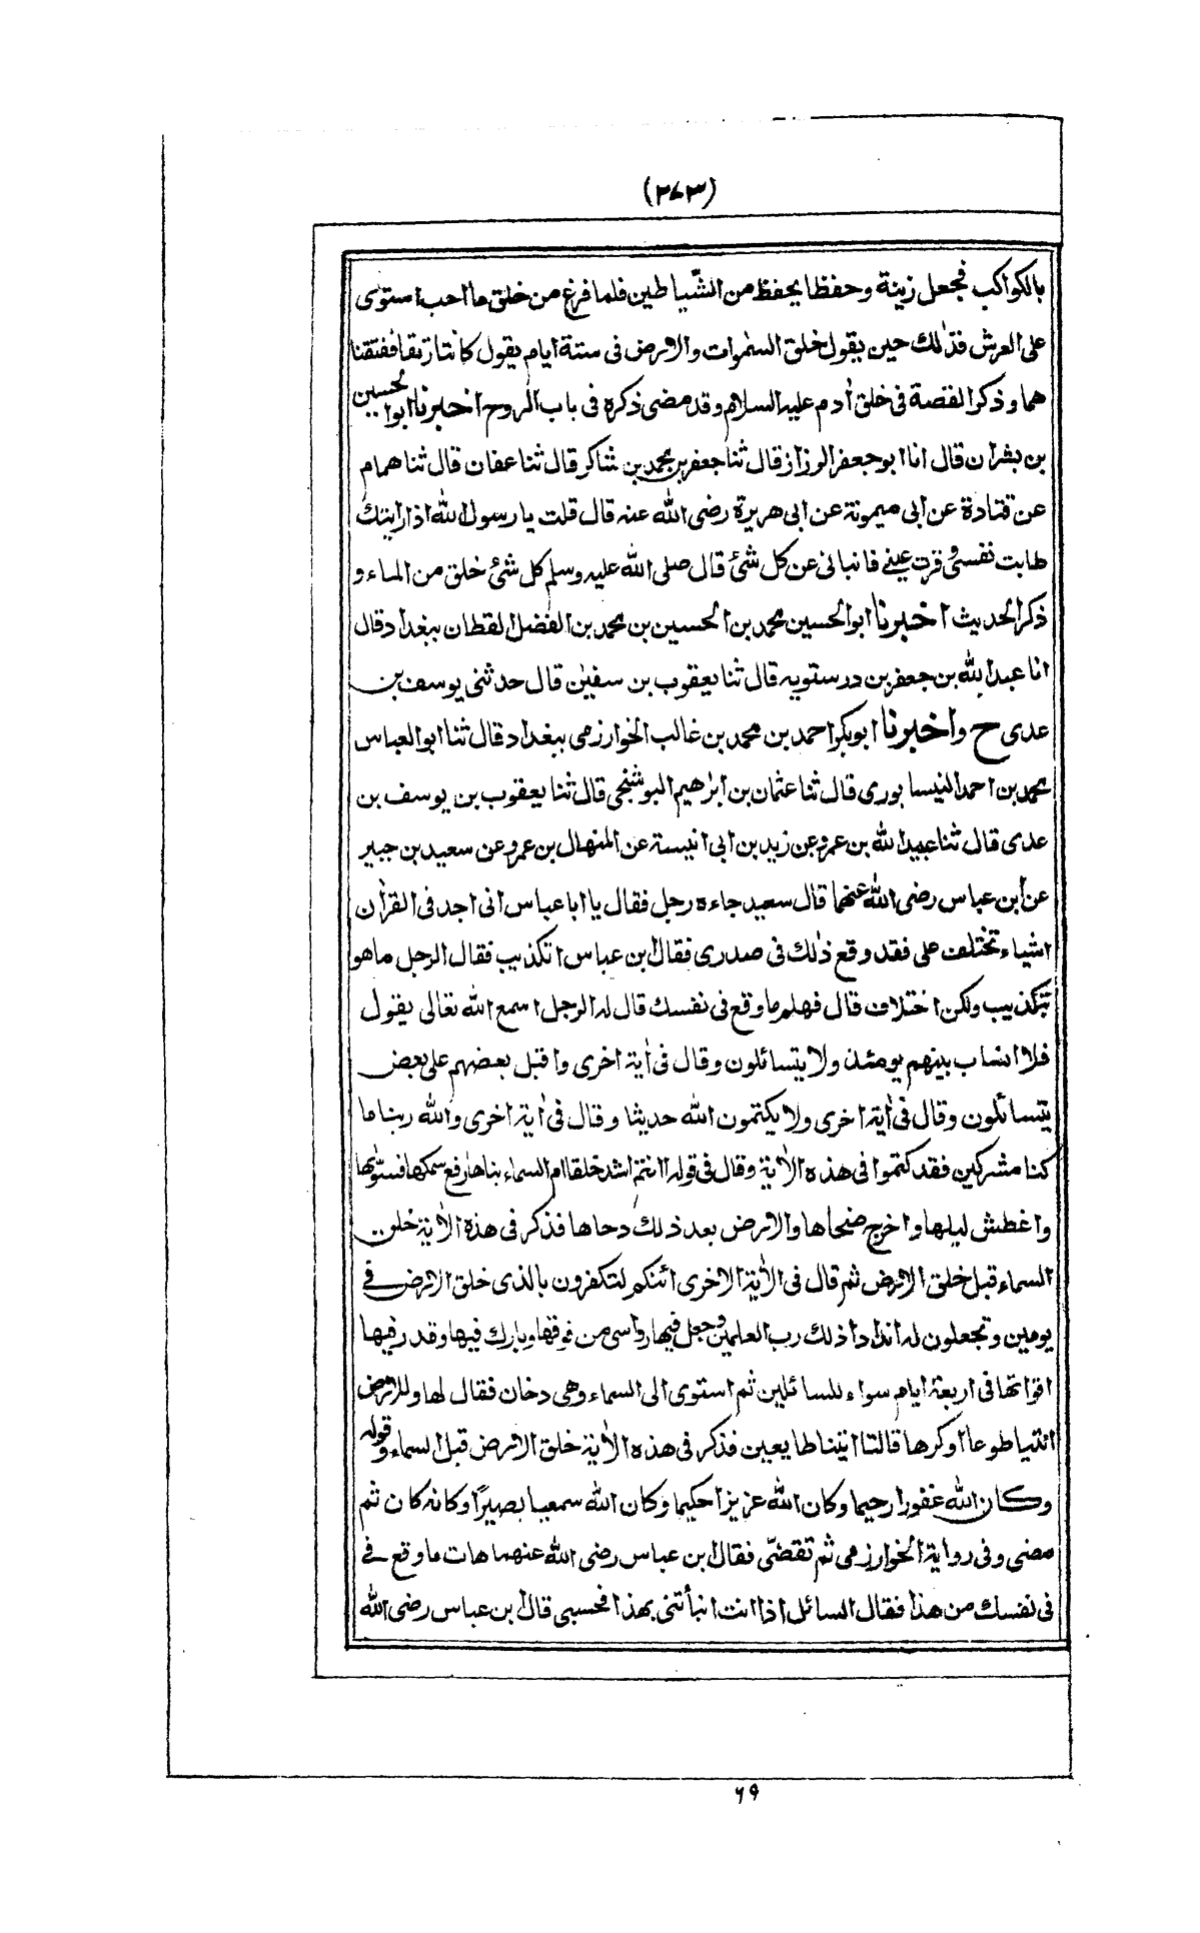 (٢٧٣)
بالكواكب فجعل زينة وحفظا يحفظ من الشّياطين فلما فرغ من خلق ما احب استوى
على العرش فذلك حين يقول خلق السموات والارض فى ستة ايام يقول كانتا رتقا ففتقنا
هما وذكر القصة فى خلق أدم عليه السلام وقد مضى ذكره فى باب الروح اخبرنا ابوالحسين
بن بشران قال انا ابوجعفر الرزاز قال ثنا جعفر بن محمد بن شاكر قال ثنا عفان قال ثنا همام
عن قتادة عن ابى ميمونة عن ابى هريرة رضى الله عنه قال قلت يا رسول الله اذا رايتك
طابت نفسى وقرت عينى فانبانى عن كل شئ قال صلى الله عليه وسلم كل شئ خلق من الماء و
ذكر الحديث اخبرنا ابوالحسين محمد بن الحسين بن محمد بن الفضل القطان ببغداد قال
انا عبدالله بن جعفر بن درستويه قال ثنا يعقوب بن سفين قال حدثنى يوسف بن
عدى ح واخبرنا ابوبكر احمد بن محمد بن غالب الخوارزمى ببغداد قال ثنا ابوالعباس
محمد بن احمد النيسابورى قال ثنا عثمان بن ابرٰهيم البوشنجى قال ثنا يعقوب بن يوسف بن
عدى قال ثنا عبيدالله بن عمرو عن زيد بن ابى انيسة عن المنهال بن عمرو عن سعيد بن جبير
عن ابن عباس رضى الله عنهما قال سعيد جاءه رجل فقال يا ابا عباس انى اجد فى القرأن
اشياء تختلف على فقد وقع ذٰلك فى صدرى فقال ابن عباس اتكذيب فقال الرجل ما هو
بتكذيب ولكن اختلاف قال فهلم ما وقع فى نفسك قال له الرجل اسمع الله تعالى يقول
فلا انساب بينهم يومئذ ولا يتسائلون وقال فى أية اخرى واقبل بعضهم على بعض
يتسائلون وقال فى أية اخرى ولا يكتمون الله حديثا وقال فى أية اخرى والله ربنا ما
كنا مشركين فقد كتموا فى هذه الأية وقال فى قوله اانتم اشد خلقا ام السماء بناها رفع سمكها فسوّٰها
واغطش ليلها واخرج ضحاها والارض بعد ذلك دحاها فذكر فى هذه الأية خلق
السماء قبل خلق الارض ثم قال فى الأية الاخرى ائنكم لتكفرون بالذى خلق الارض فى
يومين وتجعلون له اندادا ذلك رب العلمين وجعل فيها رواسى من فوقها وبارك فيها وقدر فيها
اقواتها فى اربعة ايام سواء للسائلين ثم استوى الى السماء وهى دخان فقال لها وللارض
ائتيا طوعا او كرها قالتا اتينا طايعين فذكر فى هذه الأية خلق الارض قبل السماء وقوله
وكان الله غفورا رحيما وكان الله عزيزا حكيما وكان الله سميعا بصيرًا وكانه كان ثم
مضى وفى رواية الخوارزمى ثم تقضّى فقال ابن عباس رضى الله عنهما هات ما وقع فى
فى نفسك من هذا فقال السائل اذا انت انبأتنى بهذا فحسبى قال ابن عباس رضى الله
٦٩